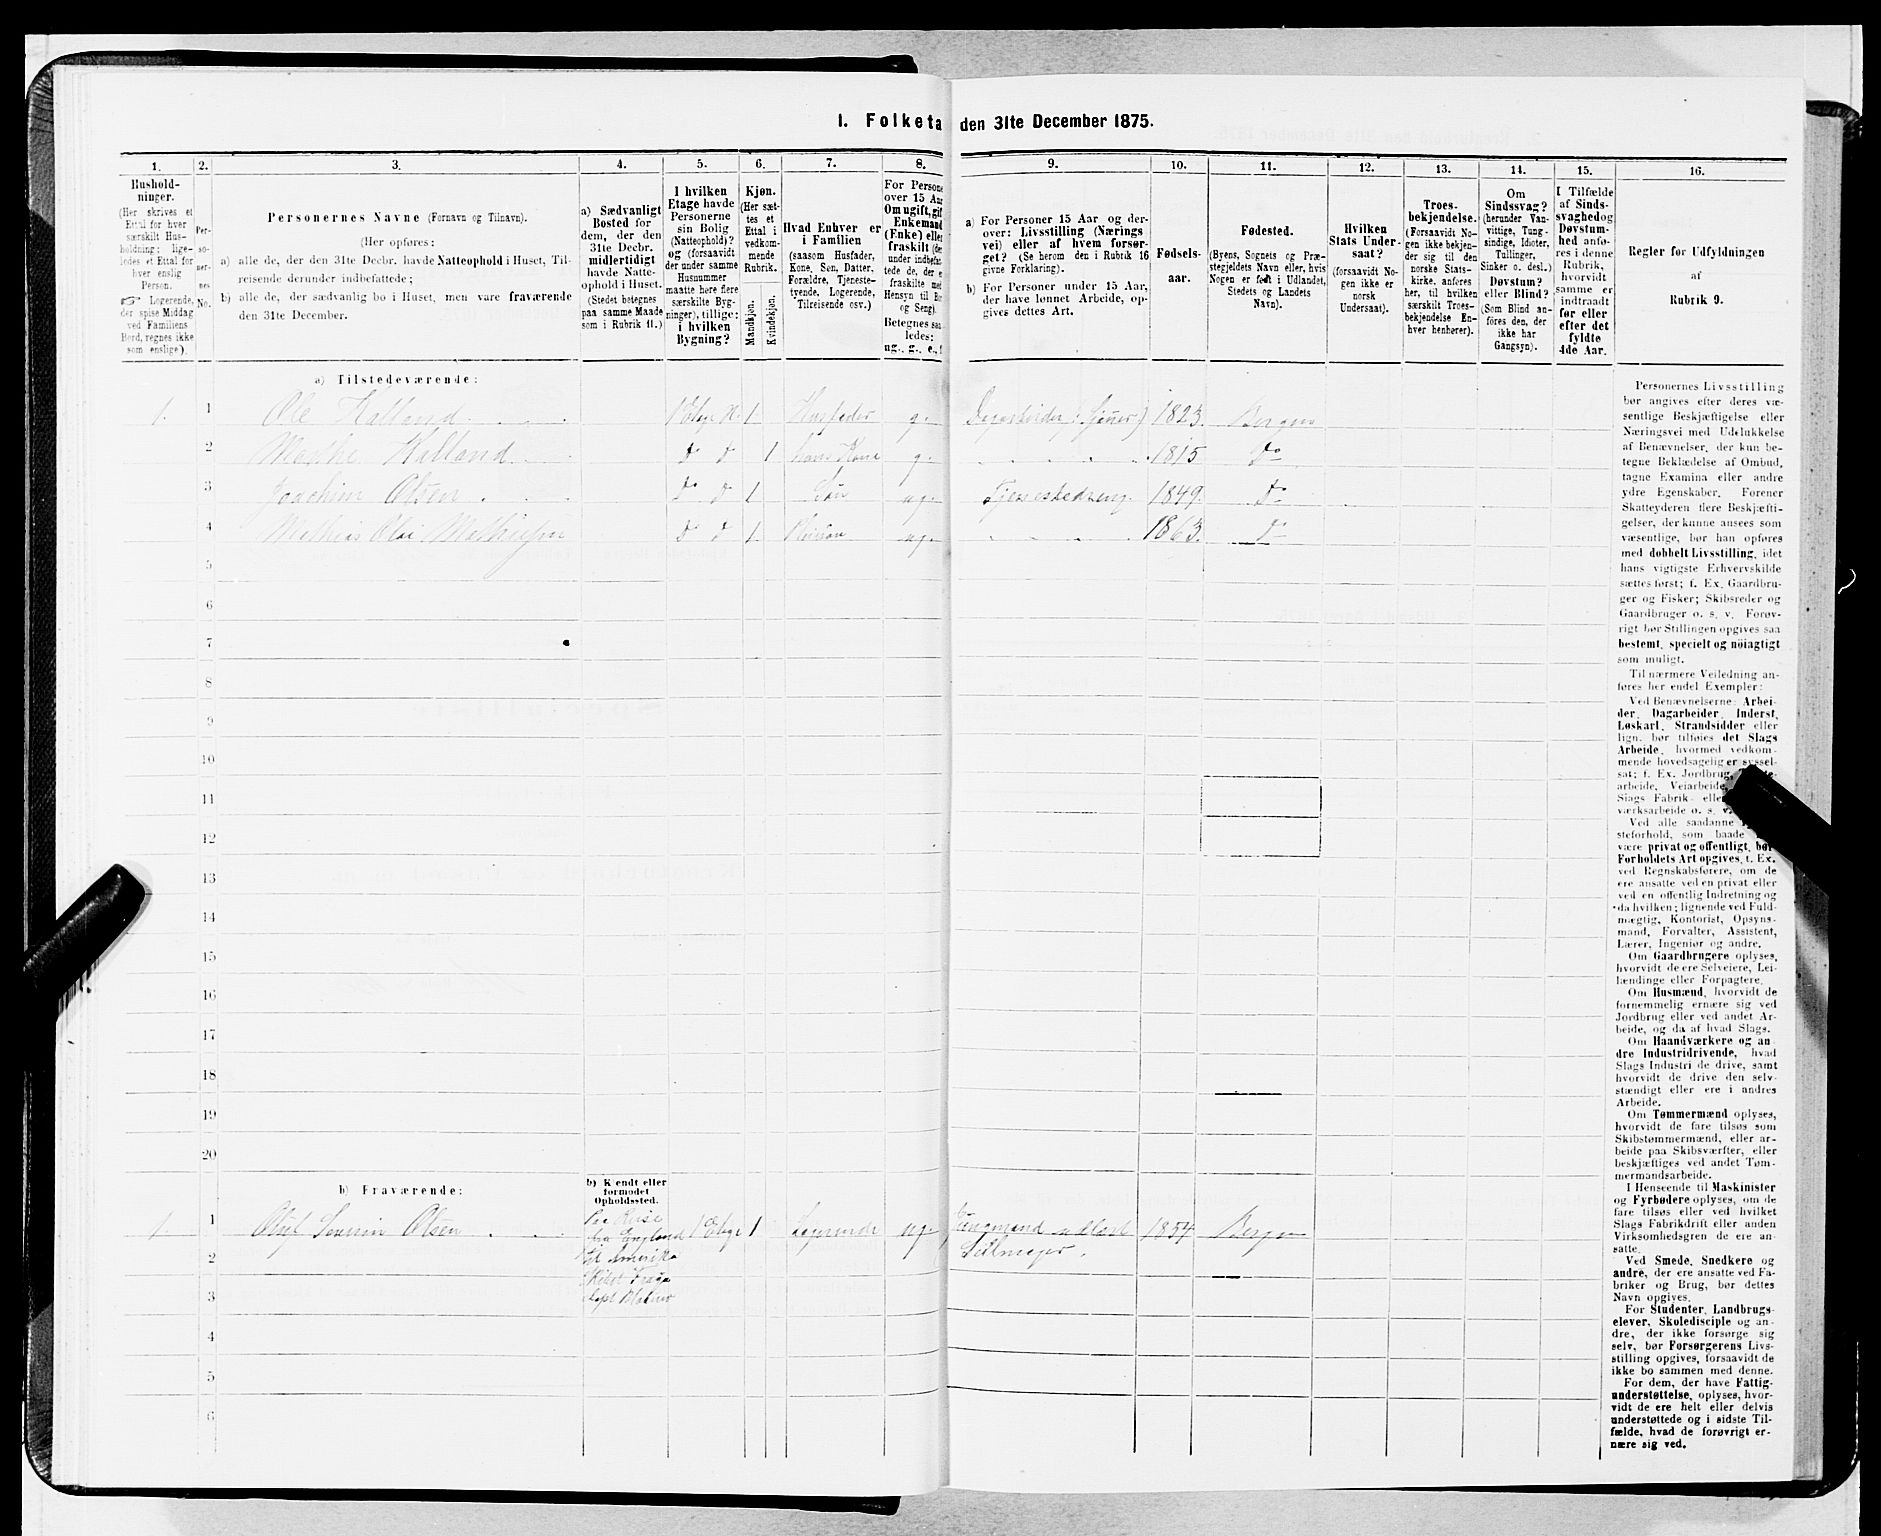 1. Folketa den 31te December 1875.
1. 2. 3. 4. 5. 6. 7. 8. 9. 10. 11. 12. 13. 14. 15. 16.
Hushold-
ninger.
(Her skrives et
Ettal for hver
særskilt Hus-
holdning; lige-
ledes et Ettal for
hver enslig
Person.
☞ Logerende,
der spise Middag
ved Familiens
Bord, regnes ikke
som enslige).
Per-
so-
ner-
nes
No.
Personernes Navne (Fornavn og Tilnavn).
(Her opføres:
a) alle de, der den 31te Decbr. havde Natteophold i Huset, Til-
reisende derunder indbefattede;
b) alle de, der sædvanlig bo i Huset, men vare fraværende
den 31te December.
a) Sædvanligt
Bosted for
dem, der den
31te Decbr.
midlertidigt
havde Natte-
ophold i Huset.
(Stedet betegnes
paa samme Maade
som i Rubrik 11.)
I hvilken
Etage havde
Personerne
sin Bolig
(Natteophold)?
og (forsaavidt
der under samme
Husnummer
maatte høre flere
særskilte Byg-
ninger), tillige:
i hvilken
Bygning?
Kjøn.
(Her sæt-
tes et
Ettal i
vedkom-
mende
Rubrik.
Mandkjøn.
Kvindekjøn.
Hvad Enhver er
i Familien
(saasom Husfader,
Kone, Søn, Datter,
Forældre, Tjeneste-
tyende, Logerende,
Tilreisende osv.)
For Persone
over 15 Aar
Om ugift, gift
Enkemand
(Enke) elle
fraskilt (der
under indbefat-
tede de, der e
fraskilte med
Hensyn til Bo
og Seng).
Betegnes saa
ledes:
ug., g., e., f
a) For Personer 15 Aar og der-
over: Livsstilling (Nærings
vei) eller af hvem forsør-
get? (Se herom den i Rubrik 16
givne Forklaring).
b) For Personer under 15 Aar,
der have lønnet Arbeide, op-
gives dettes Art.
Fødsels-
aar.
Fødested.
(Byens, Sognets og Præ-
stegjeldets Navn eller, hvis
Nogen er født i Udlandet,
Stedets og Landets
Navn).
Hvilken
Stats Under-
saat?
(forsaavidt No-
gen ikke er
norsk
Undersaat).
Troes-
bekjendelse.
(Forsaavidt No-
gen ikke bekjen-
der sig til den
norske Stats-
kirke, anføres
her, til hvilken
særskilt Troes-
bekjendelse En-
hver henhører).
Om
Sindssvag?
(herunder Van-
vittige, Tung-
sindige, Idioter,
Tullinger,
Sinker o. desl.)
Døvstum?
eller Blind?
(Som Blind an-
føres den, der
ikke har
Gangsyn).
I Tilfælde
af Sinds-
svaghed og
Døvstum-
hed anfø-
res i denne
Rubrik,
hvorvidt
samme er
indtraadt
før eller
efter det
fyldte
4de Aar.
Regler før Udfyldningen
af
Rubrik 9.
a) Tilstedeværende:
1. 1 Ole Halland 1 Etage 1 Husfader g. 1823 Bergen
2 Halland D D 1 hans Kone g. 1815 Do
3 Joachim Olsen Do D 1 Søn ug. 1849 Do
4 Mathias Olai Mathiesen D D 1 Pleiesøn ug. 1863 Do
5
6
7
8
9
10
11
12
13
14
15
16
17
18
19
20
b) Fraværende:
b) Kjendt eller
formodet
Opholdssted.
1 1 Olaf Severin Olsen Paa Reise 1 Etage 1 Logerende ug. 1854 Bergen
fra England
2 til Amerika
3
4
5
6
Personernes Livsstilling
bør angives efter deres væ-
sentlige Beskjæftigelse eller
Næringsvei med Udelukkelse
af Benævnelser, der kun be-
tegne Beklædelse af Ombud,
tagne Examina eller andre
ydre Egenskaber. Forener
Skatteyderen flere Beskjæfti-
gelser, der kunne ansees som
væsentlige, bør han opføres
med dobbelt Livsstilling, idet
hans vigtigste Erhvervskilde
sættes først; f. Ex. Gaardbru-
ger og Fisker; Skibsreder og
Gaardbruger o. s. v. Forøv-
rigt bør Stillingen opgives saa
bestemt, specielt og nöiagtigt
som muligt.
Til nærmere Veiledning an-
føres her endel Exempler:
Ved Benævnelserne: Arbei-
der, Dagarbeider, Inderst,
Løskarl, Strandsidder eller
lign. bør tilføies det Slags
Arbeide, hvormed vedkom-
mende hovedsagelig er syssel-
sat; f. Ex. Jordbrug,
arbeide, Veiarbeide,
Slags Fabrik- elle
værksarbeide o. s. v.
Ved alle saadanne
steforhold, som baade
være privat og offentligt, bør
Forholdets Art opgives, f. Ex.
ved Regnskabsførere, om de
ere ansatte ved en privat eller
ved en offentlig Indretning og
da hvilken; lignende ved Fuld-
mægtig, Kontorist, Opsyns-
mand, Forvalter, Assistent,
Lærer, Ingeniør og andre.
Om Gaardbrugere oplyses,
hvorvidt de ere Selveiere, Lei-
lændinge eller Forpagtere.
Om Husmænd, hvorvidt de
fornemmelig ernære sig ved
Jordbrug eller ved andet Ar-
beide, og da af hvad Slags.
Om Haandværkere og an
dre Industridrivende, hvad
Slags Industri de drive, samt
hvorvidt de drive den selv-
stændigt eller ere i andres
Arbeide.
Om Tømmermænd oplyses,
hvorvidt de fare tilsøs som
Skibstømmermænd, eller ar-
beide paa Skibsværfter, eller
beskjæftiges ved andet Tøm-
mermandsarbeide.
I Henseende til Maskinister
og Fyrbødere oplyses, om de
fare tilsøs eller ved hvilket
Slags Fabrikdrift eller anden
Virksomhedsgren de ere an-
satte.
Ved Smede, Snedkere og
andre, der ere ansatte ved Fa-
briker og Brug, bør dettes
Navn opgives.
For Studenter, Landbrugs-
elever, Skoledisciple og an-
dre, der ikke forsørge sig
selv, bør Forsørgerens Livs-
stilling opgives, forsaavidt de
ikke bo sammen med denne.
For dem, der have Fattig-
understøttelse, oplyses, hvor-
vidt de ere helt eller delvis
understøttede og i sidste Til-
fælde, hvad de forøvrigt er-
nære sig ved.